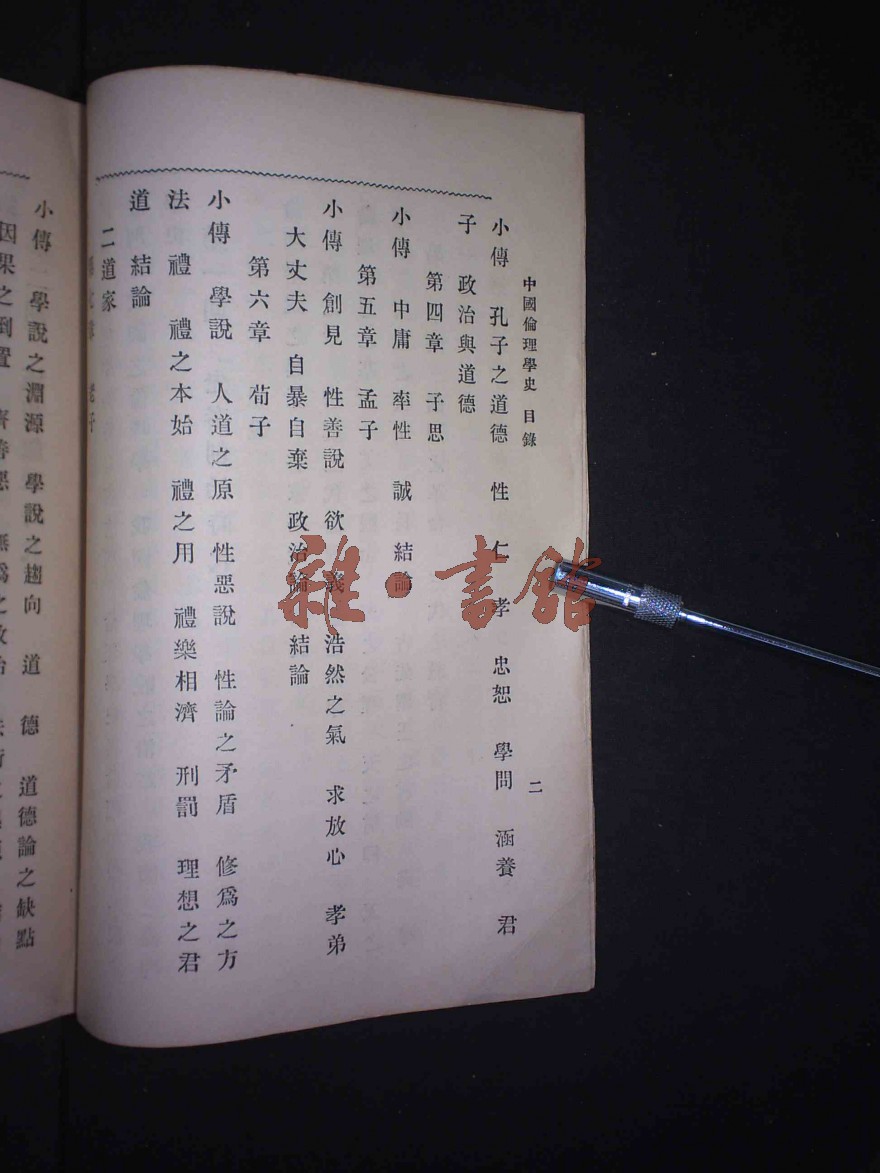 中國倫理學史 目錄 二
小傳 孔子之道德 性 仁 孝 忠恕 學問 涵養 君
子 政治與道德
第四章 子思
小傳 中庸 率性 誠 結論
第五章 孟子
小傳 創見 性善說 欲 義 浩然之氣 求放心 孝弟
大丈夫 自暴自棄 政治論 結論
第六章 荀子
小傳 學說 人道之原 性惡說 性論之矛盾 修爲之方
法 禮 禮之本始 禮之用 禮樂相濟 刑罰 理想之君
道 結論
二道家
小傳 學說之淵源 學說之趨向 道 德 道德論之缺點
因果之倒置
無爲之政治
雜·書館